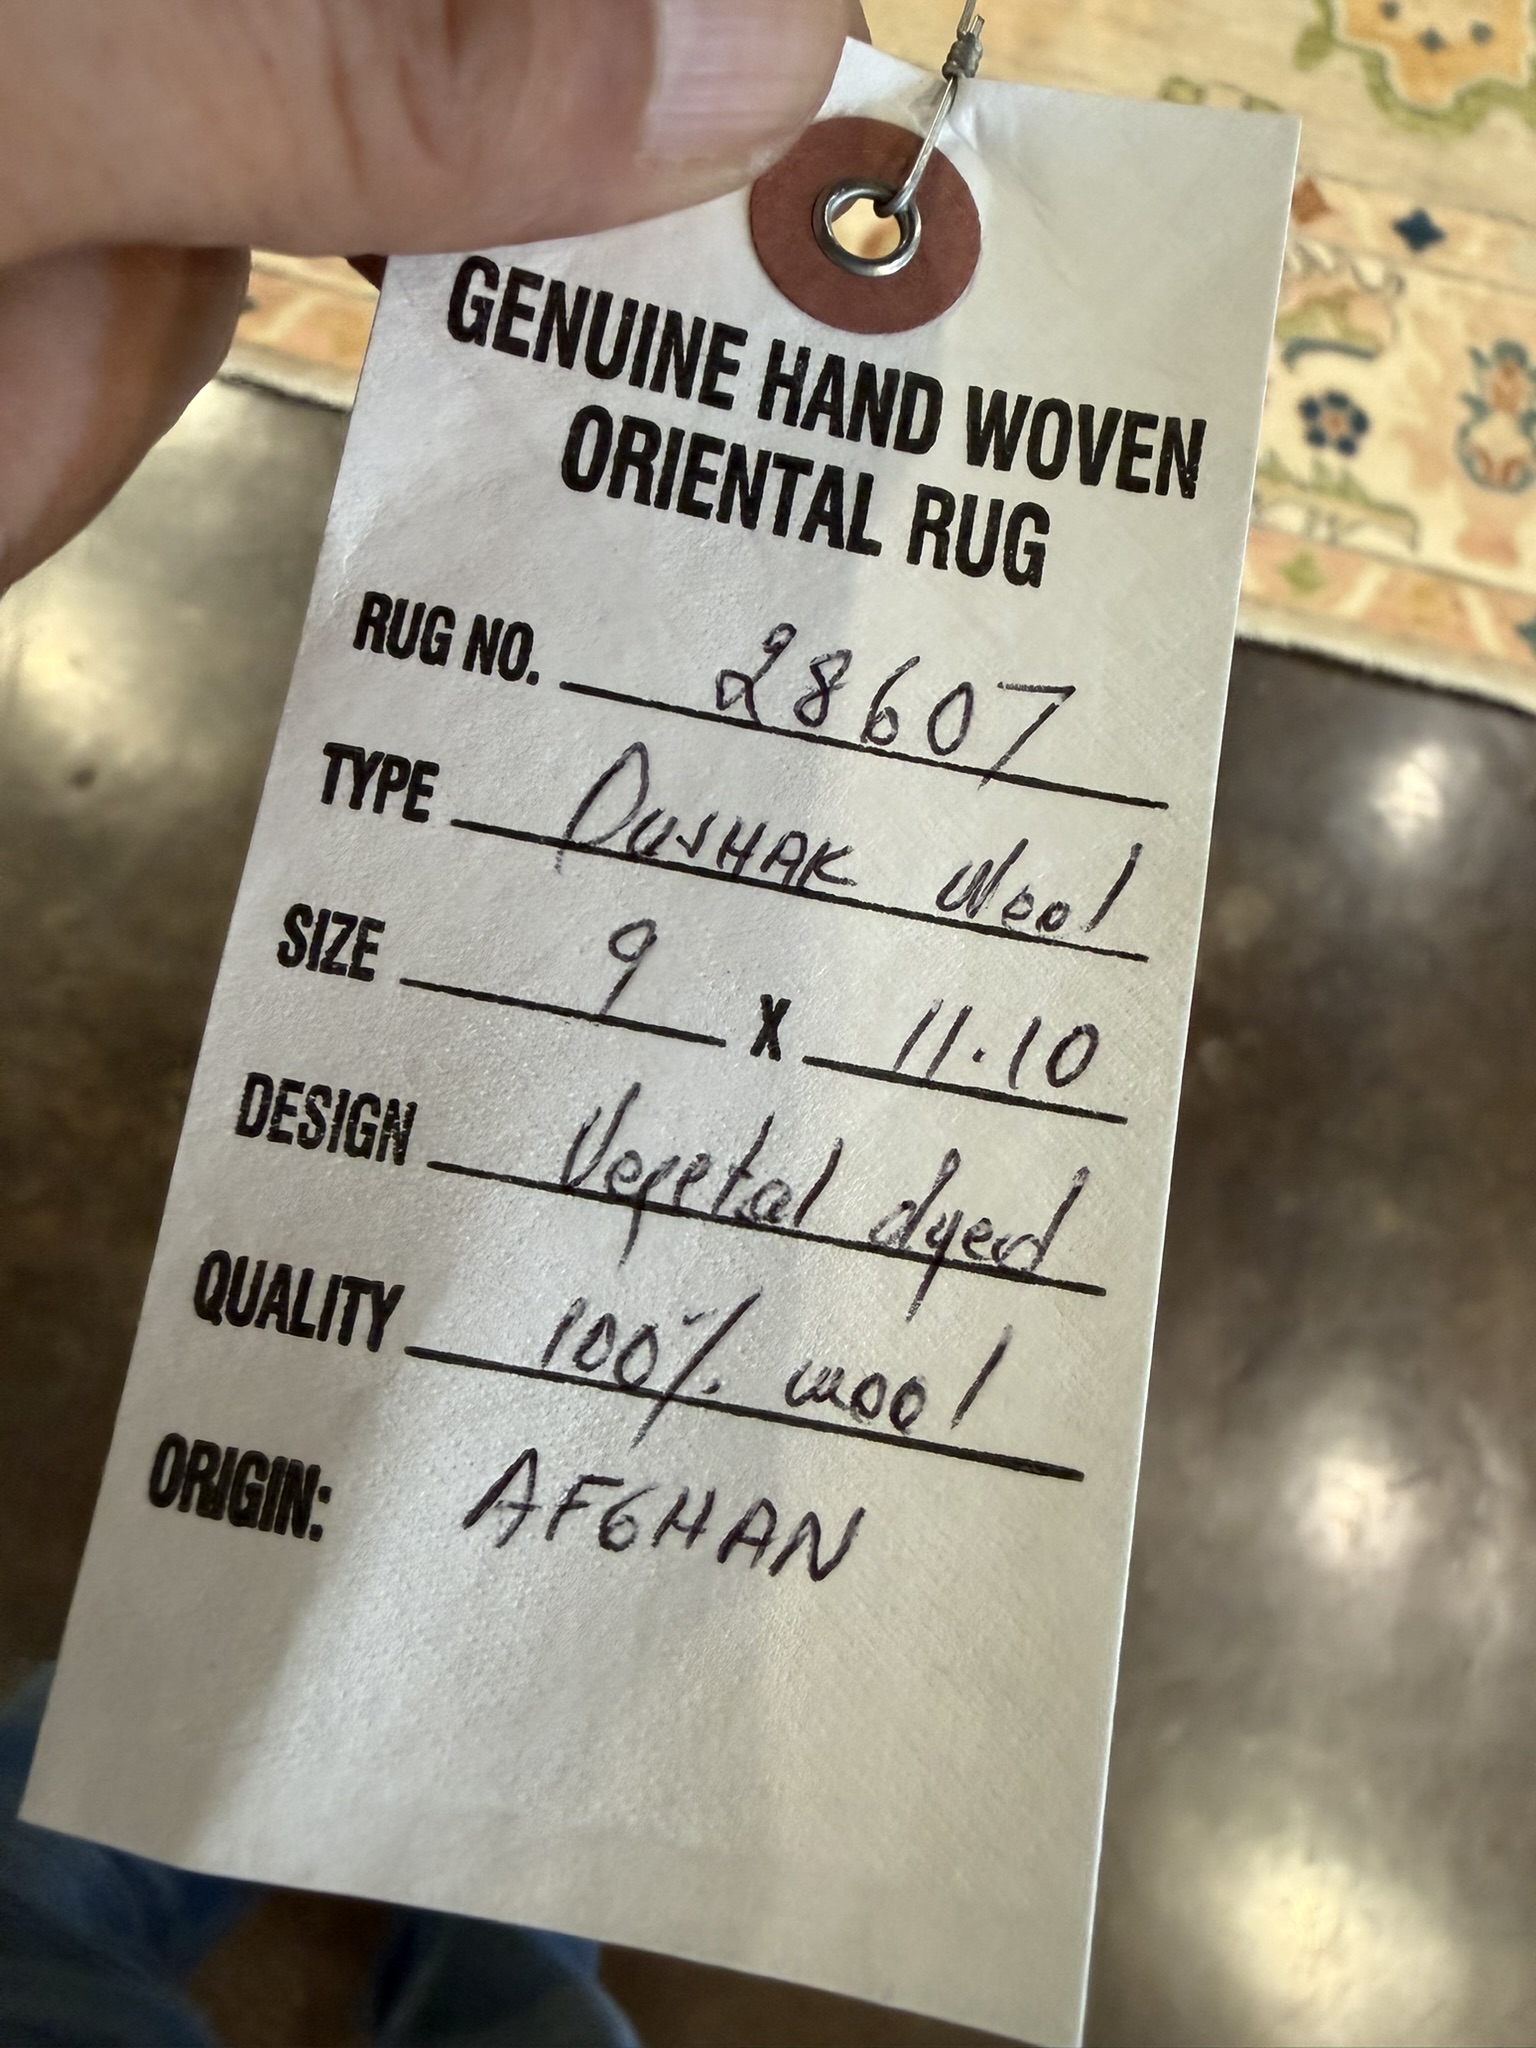 GENUINE HAND WOVEN
ORIENTAL RUG
RUG NO. 28607
TYPE OUSHAK Wool
SIZE 9 X 11.10
DESIGN Vegetal dyed
QUALITY 100% wool
ORIGIN: AFGHAN